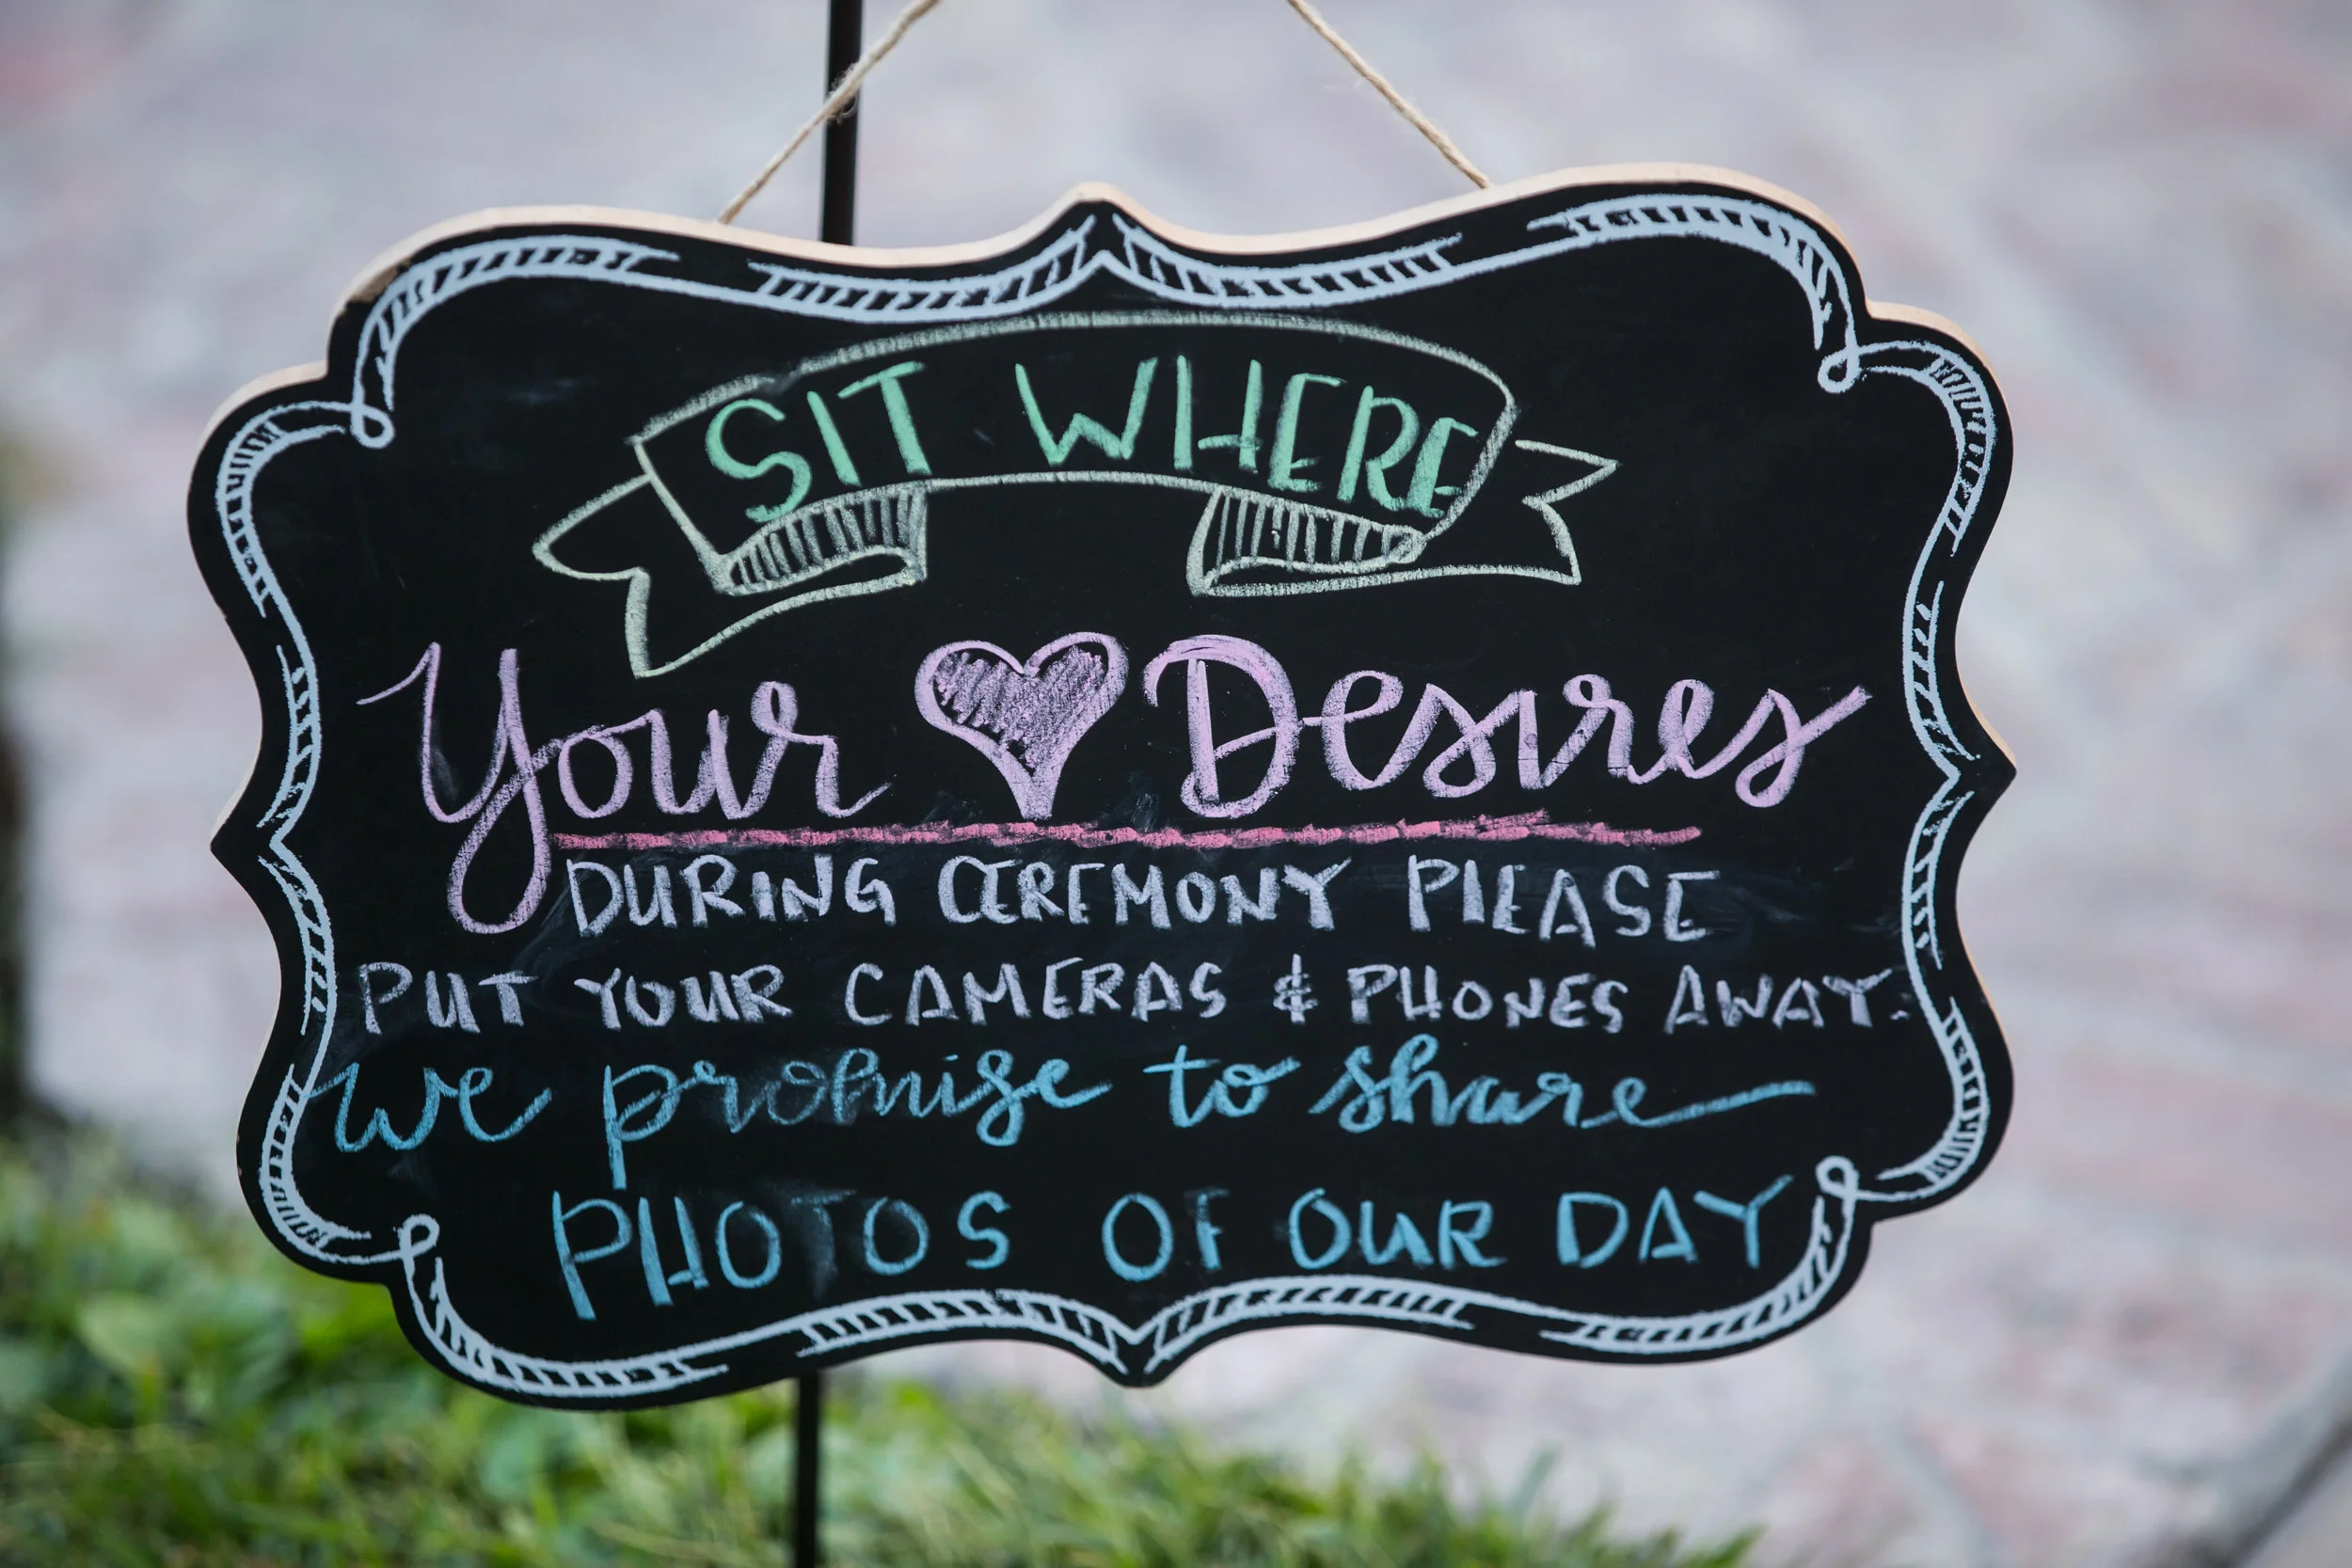 SIT WHERE
Your ♥ Desires
DURING CEREMONY PLEASE
PUT YOUR CAMERAS & PHONES AWAY.
we promise to share
PHOTOS OF OUR DAY